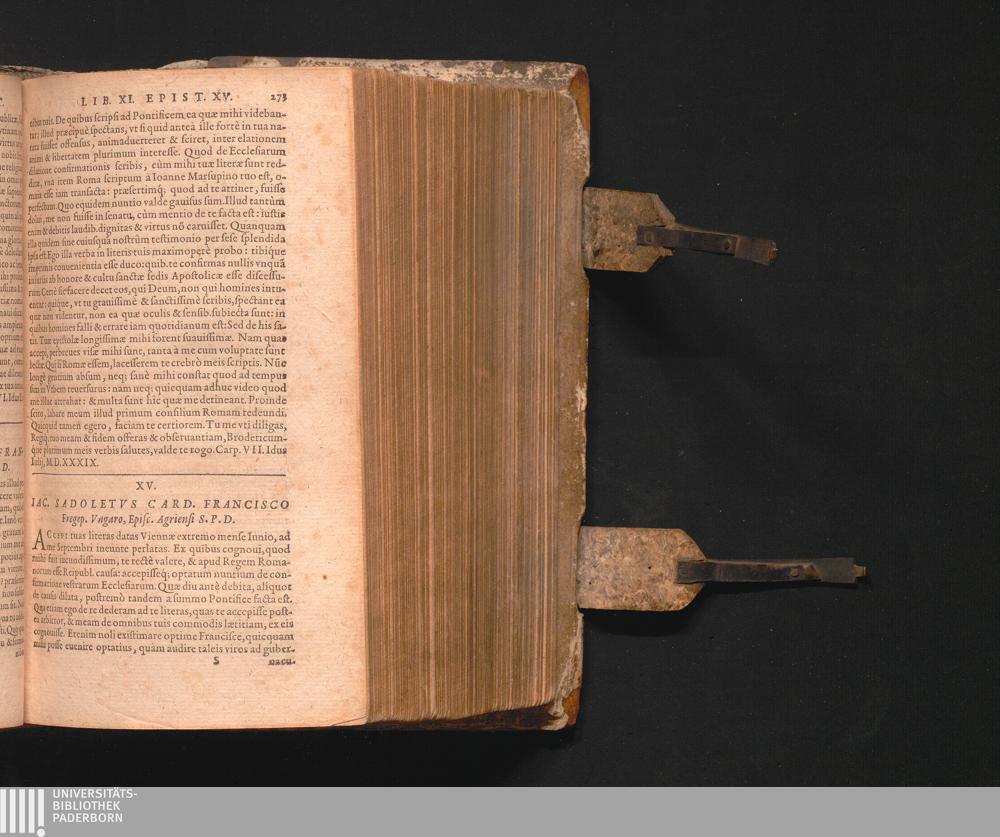 LIB. XI. EPIST. XV. 273
tibus tuis. De quibus scripsi ad Pontificem ea quæ mihi videban-
tur: illud præcipuè spectans, vt si quid anteà ille fortè in tua na-
tura fuisset offensus, animaduerteret & sciret, inter elationem
animi & libertatem plurimum interesse. Quod de Ecclesiarum
dilatione confirmationis scribis, cùm mihi tuæ literæ sunt red-
ditæ, vnà item Roma scriptum à Ioanne Marsupino tuo est, o-
mnia esse iam transacta: præsertimq; quod ad te attinet, fuisse
perfectum. Quo equidem nuntio valde gauisus sum. Illud tantùm
dolui, me non fuisse in senatu, cùm mentio de te facta est: iustis
enim & debitis laudib. dignitas & virtus nō caruisset. Quanquam
illa quidem sine cuiusquā nostrûm testimonio per sese splendida
ipsa est. Ego illa verba in literis tuis maximoperè probo: tibique
imprimis conuenientia esse duco: quib. te confirmas nullis vnquā
iniuriis ab honore & cultu sanctæ sedis Apostolicæ esse discessu-
rum. Certè sic facere decet eos, qui Deum, non qui homines intu-
entur: quique, vt tu grauissimè & sanctissimè scribis, spectant ea
quæ non videntur, non ea quæ oculis & sensib. subiecta sunt: in
quibus homines falli & errare iam quotidianum est: Sed de his sa-
tis. Tuæ epistolæ longissimæ mihi forent suauissimæ. Nam quas
accepi, perbreues visæ mihi sunt, tanta à me cum voluptate sunt
lectæ. Qui si Romæ essem, lacesserem te crebrò meis scriptis. Nūc
longè gentium absum, neq; sanè mihi constat quod ad tempus
sim in Vrbem reuersurus: nam neq; quicquam adhuc video quod
me illac attrahat: & multa sunt hic quæ me detineant. Proinde
scito, labare meum illud primum consilium Romam redeundi.
Quicquid tamen egero, faciam te certiorem. Tu me vti diligas,
Regiq; tuo meam & fidem offeras & obseruantiam, Brodericum-
que plurimum meis verbis salutes, valde te rogo. Carp. VII. Idus
Iulij, M.D.XXXIX.
XV.
IAC. SADOLETVS CARD. FRANCISCO
Fregep. Vngaro, Episc. Agriensi S. P. D.
ACCEPI tuas literas datas Viennæ extremo mense Iunio, ad
me Septembri ineunte perlatas. Ex quibus cognoui, quod
mihi fuit iucundissimum, te rectè valere, & apud Regem Roma-
norum esse Reipubl. causa: accepissēq; optatum nuntium de con-
firmatione vestrarum Ecclesiarum. Quæ diu antè debita, aliquot
de causis dilata, postremò tandem à summo Pontifice facta est.
Qua etiam ego de re dederam ad te literas, quas te accepisse post-
ea arbitror, & meam de omnibus tuis commodis lætitiam, ex eis
cognouisse. Etenim noli existimare optime Francisce, quicquam
mihi posse euenire optatius, quàm audire taleis viros ad guber-
S nacu-
UNIVERSITÄTS-
BIBLIOTHEK
PADERBORN